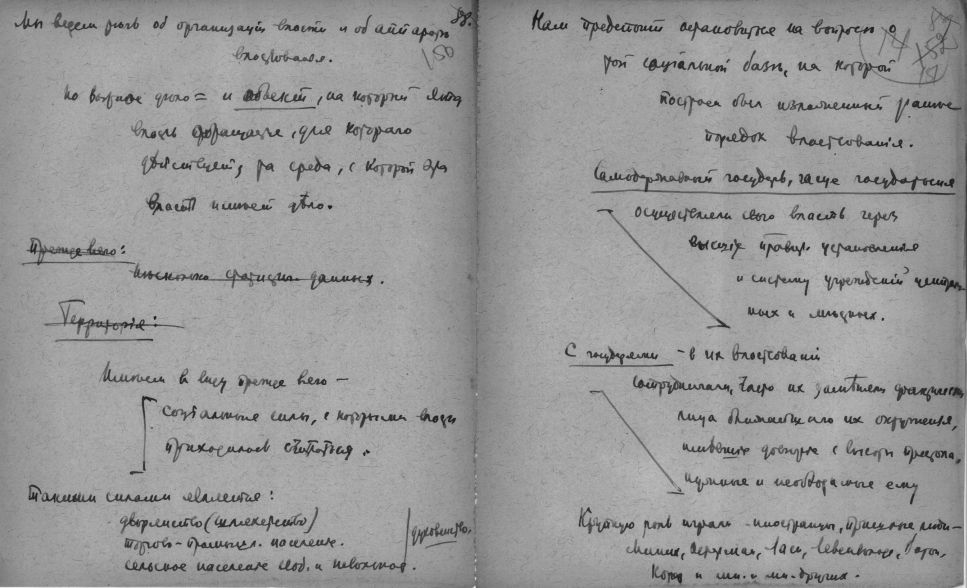 88.
Мы ведем рѣчь об организаціи власти и об аппаратѣ
властвованія.
150
Но важное дѣло = и объект, на который эта
власть, для котораго
дѣйствует, та среда, с которой эта
власть имѣет дѣло.
Прежде всего:
Нѣсколько данных.
Территорія:
Имѣем в виду прежде всего —
соціальные силы, с которыми власти
приходилось считаться.
Такими силами являются:
дворянство (шляхетство)
торгово-промышл. население.
сельское население своб. и невольное.
духовенство.
Нам предстоит остановиться на вопросѣ о
той соціальной базѣ, на которой
построен был изложенный ранѣе
порядок властвованія.
152
Самодержавный государь, чаще государыня
осуществляли свою власть через
высшія правит. установления
и систему учрежденій централь-
ных и мѣстных.
С государями — в их властвованіи
сотрудничали, часто их замѣняли
лица ближайшаго их окруженія,
с высоты престола,
нужные и необходимые ему
Крупную роль играли — иностранцы, пришлые люди —
Миних, Остерман,
и мн. и мн. других.